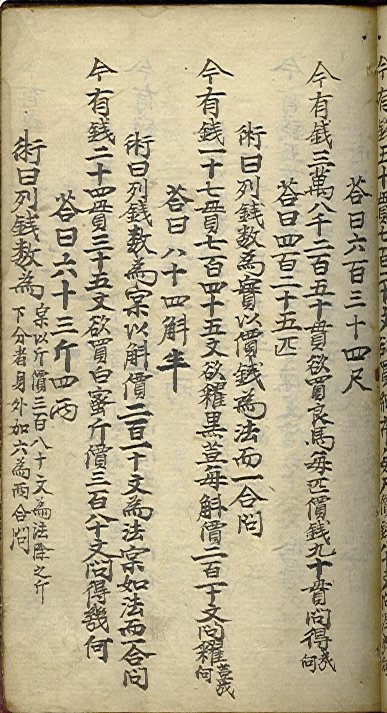 荅曰六百三十四尺
今有錢三萬八千二百五十貫欲買良馬每匹價錢九十貫問得幾何
荅曰四百二十五匹
術曰列錢數為實以價錢為法而一合問
今有錢一十七貫七百四十五文欲糴黑荳每斛價二百一十文問糴荳幾何
荅曰八十四斛半
術曰列錢數為宲以斛價二百一十文為法宲如法而一合問
今有錢二十四貫三十五文欲買白蜜斤價三百八十文問得幾何
荅曰六十三斤四兩
術曰列錢數為宲以斤價三百八十文為法除之斤
下分者身外加六為兩合問